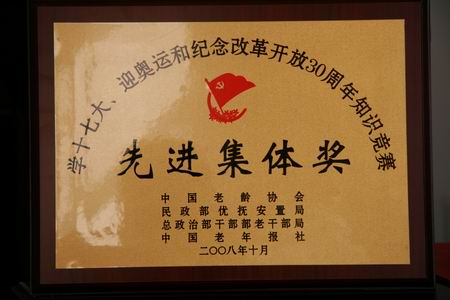 学十七大、迎奥运和纪念改革开放30周年知识竞赛
先进集体奖
中国老龄协会
民政部优抚安置局
总政治部干部部老干部局
中国老年报社
二〇〇八年十月